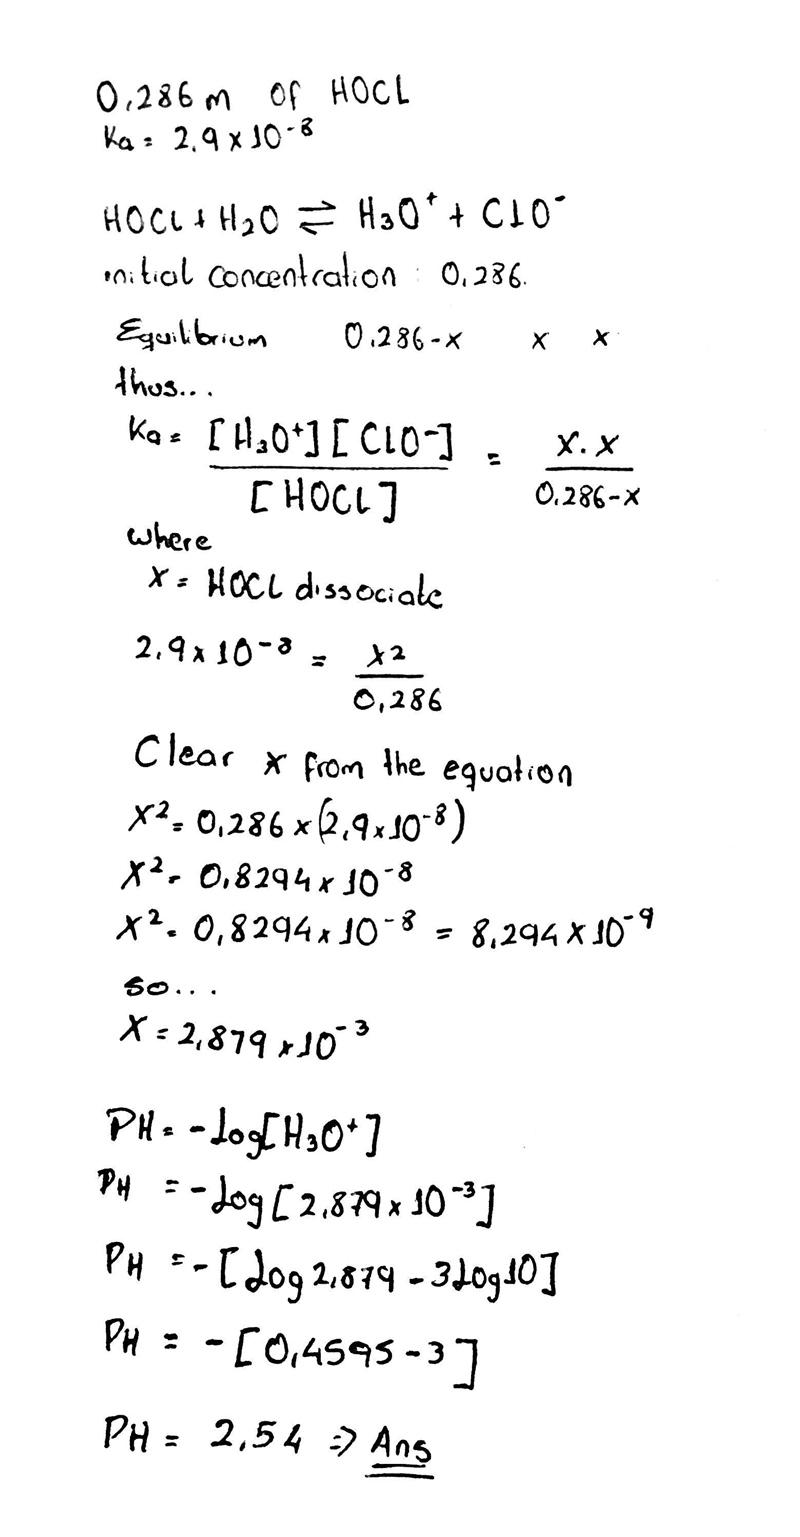 0,286 m of HOCL
Ka = 2.9 x 10-8
HOCl + H2O ⇌ H3O+ + ClO-
initial concentration : 0,286.
Equilibrium 0.286-x x x
thus...
Ka = [H3O+][ClO-] / [HOCl] = x.x / 0.286-x
where
x = HOCL dissociate
2.9 x 10-8 = x2 / 0,286
Clear x from the equation
x2 = 0,286 x (2,9 x 10-8)
x2 = 0,8294 x 10-8
x2 = 0,8294 x 10-8 = 8,294 x 10-9
so...
x = 2,879 x 10-3
PH = -Log[H3O+]
PH = -Log[2,879 x 10-3]
PH = -[Log 2,879 - 3Log10]
PH = -[0,4595-3]
PH = 2,54 => Ans